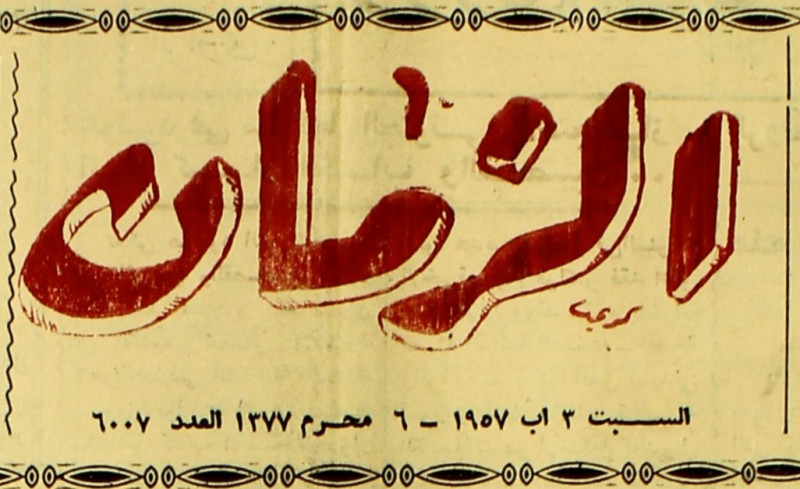 الزمان
السبت ٣ اب ١٩٥٧ – ٦ محرم ١٣٧٧ العدد ٦٠٠٧